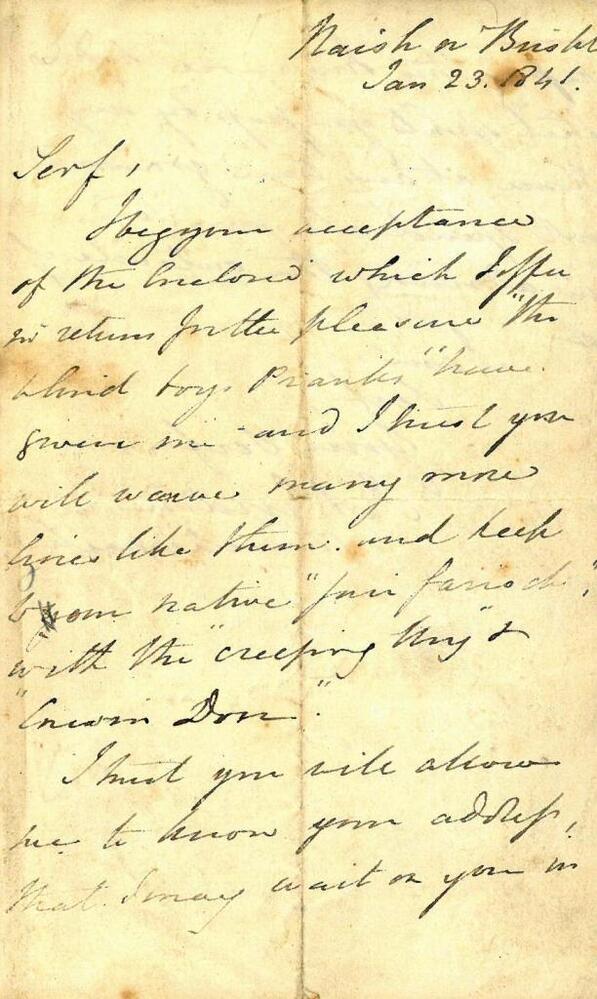 Naish nr Bristol
Jan 23. 1841.
Serf,
I beg your acceptance
of the Enclosed which I offer
in return for the pleasure "the
blind boys Pranks" have
given me - and I trust you
will weave many more
lines like them. and keep
your native "
with the "creeping Ury" &
" Don".
I trust you will allow
me to know your address,
that I may wait on you in